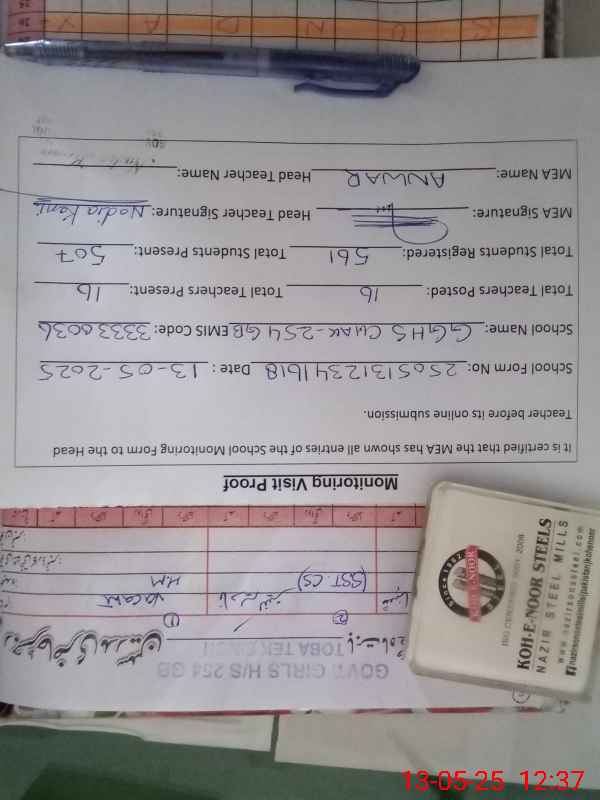 Monitoring Visit Proof
It is certified that the MEA has shown all entries of the School Monitoring Form to the Head
Teacher before its online submission.
School Form No: 25051312341618 Date : 13-05-2025
School Name: GGHS CHAK-254 GB EMIS Code: 33330036
Total Teachers Posted: 16 Total Teachers Present: 16
Total Students Registered: 561 Total Students Present: 507
MEA Signature: Head Teacher Signature: Nadia Kanwal
MEA Name: ANWAR Head Teacher Name:
GOVT: GIRLS H/S 254 GB
TOBA TEK SINGH
①
②
VACANT
H.M
(SST. CS)
Since 1982
KOHENOOR
ISO CERTIFIED 9001: 2008
KOH-E-NOOR STEELS
NAZIR STEEL MILLS
www.nazirsonssteel.com
S U N D A Y
13-05-25 12:37